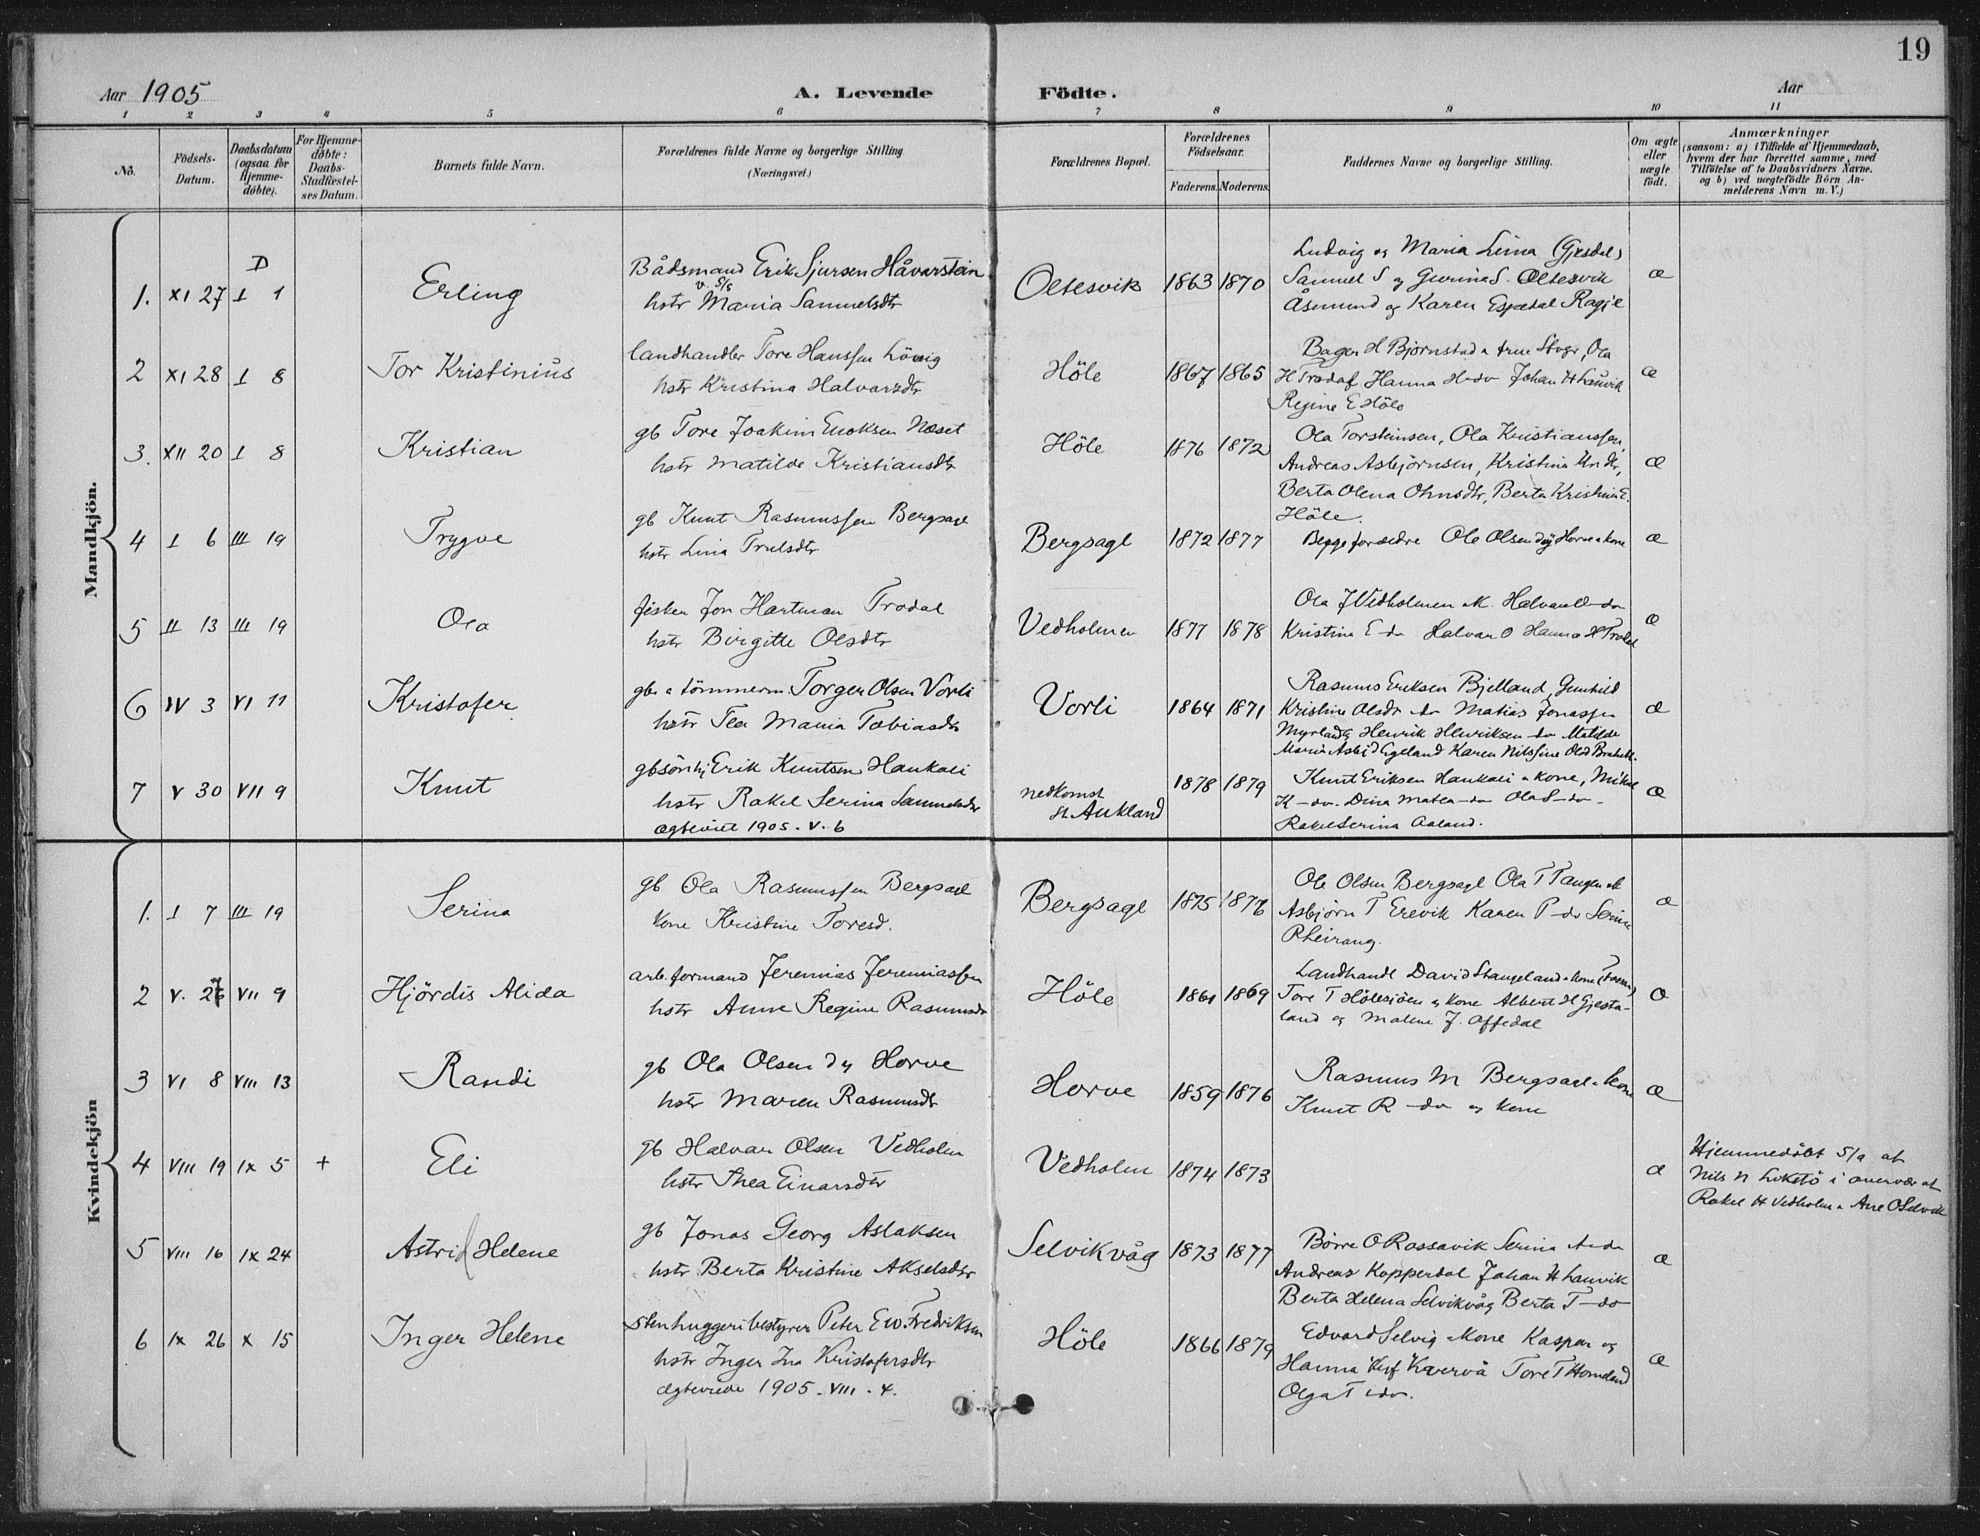 19
Aar 1905
A. Levende Födte.
Aar
1 2 3 4 5 6 7 8 9 10 11
No.
Födsels-Datum.
Daabsdatum (ogsaa for Hjemme-döbte).
For Hjemme-döbte: Daabs-Stadfæstel-ses Datum.
Barnets fulde Navn.
Forældrenes fulde Navne og borgerlige Stilling. (Næringsvei.)
Forældrenes Bopæl.
Forældrenes Födselsaar.
Faderens. Moderens.
Faddernes Navne og borgerlige Stilling.
Om ægte eller uægte födt.
Anmærkninger
(saasom: a) i Tilfælde af Hjemmedaab,
hvem der har forrettet samme, med
Tilföielse af to Daabsvidners Navne.
og b) ved uægtefödte Börn An-
melderens Navn m. V.)
Mandkjön.
1. XI 27 D I 1 Erling
Bådsmand Erik Sjursen Håvarstein
hstr Maria Samuelsdtr
Oltesvik 1863 1870
Ludvig og Maria Lima (Gjesdal)
Samuel S og Gurina S. Oltesvik
Åsmund og Karen Espedal
æ
2 XI 28 I 8 Tor Kristinius
landhandler Tore Hanssen Lövig
hstr Kristina Halvarsdtr
Höle 1867 1865
Bager H Bjørnstad
Hanna Johan H Lauvik
Regine E Höle
æ
3. XII 20 I 8 Kristian
gb Tore Joakim Enoksen Næset
hstr Matilde Kristiansdtr
Höle 1876 1872
Ola Torsteinsen, Ola Kristianssen,
Andreas Asbjörnsen, Kristina
Berta Olena Berta Kristina E.
Höle.
æ
4 I 6 III 19 Trygve
gb Knut Rasmussen Bergsagl
hstr Lina Trulsdtr
Bergsagl 1872 1877
Begge forældre Ole Olsen Horve kone
æ
5 II 13 III 19 Ola
fisker Jon Hartman Trodal
hstr Birgitte Olsdtr
Vedholmen 1877 1878
Ola J Vedholmen
Kristine E do Halvar O Hanna H Trodal
æ
6 IV 3 VI 11 Kristofer
gbr a tömmerm. Torger Olsen Vorli
hstr Tea Maria Tobiasdtr
Vorli 1864 1871
Rasmus Eriksen Bjelland, Gunhild
Kristine Olsdtr do Matias Jonassen
Myrland, Henrik Henriksen do Matilde
Maria Egeland Karen
æ
7 V 30 VII 9 Knut
gbsön Erik Knutsen Haukali
hstr Rakel Serina Samuelsdtr
ægteviet 1905. V. 6
nedkomst
Aukland 1878 1879
Knut Eriksen Haukali a kone, Mikal
K - do. Dina Matea - do Ola S - do -
Rakel Serina Aaland.
æ
Kvindekjön
1. I 7 III 19 Serina
gb Ola Rasmussen Bergsagl
kone Kristine Toresd.
Bergsagl 1875 1876
Ole Olsen Bergsagl Ola T Tangen
Asbjörn T Erevik Karen P - do Serine
æ
2 V. 26 VII 9 Hjördis Alida
arb.formand Jeremias Jeremiassen
hstr Anne Regine Rasmusdtr
Höle 1861 1869
Landhandl David Stangeland a kone
Tore T Hölesjöen og kone Albert H Gjesta-
land og Malene J. Offedal
æ
3 VI 8 VIII 13 Randi
gb Ola Olsen Horve
hstr Maren Rasmusdtr
Horve 1859 1876
Rasmus M Bergsagl a kone
Knut R - do og kone
æ
4 VIII 19 IX 5 + Eli
gb Halvar Olsen Vedholm
hstr Thea Einarsdtr
Vedholm 1874 1873
æ
Hjemmedöbt 5/9 af
Nils N i overvær af
Rakel H Vedholm a Ane O Selvik
5 VIII 16 IX 24 Astrid Helene
gb Jonas Georg Aslaksen
hstr Berta Kristine Akselsdtr
Selvikvåg 1873 1877
Börre O Rossavik Serina
Andreas Kopperdal Johan H Lauvik
Berta Helena Selvikvåg Berta T - do
æ
6 IX 26 X 15 Inger Helene
Stenhuggeribestyrer Peter Ew. Fredriksen
hstr Inger Ina Kristofersdtr
ægteviede 1905. VIII. 4.
Höle 1866 1879
Edvard Selvig a kone Kaspar og
Hanna Kvervå Tore T Homeland
Olga T do.
æ